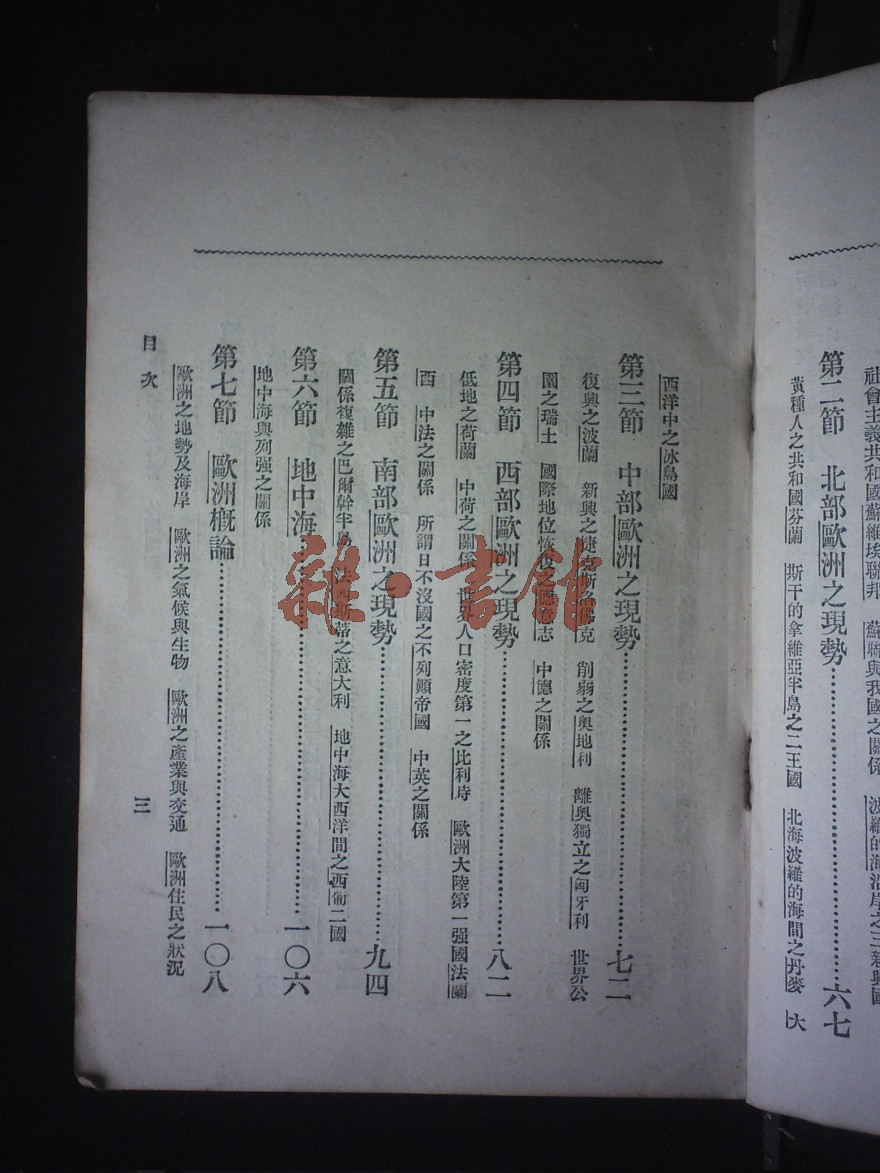 社會主義共和國蘇維埃聯邦　蘇聯與我國之關係　波羅的海沿岸之三新興國
第二節　北部歐洲之現勢……六七
黃種人之共和國芬蘭　斯干的拿維亞半島之二王國　北海波羅的海間之丹麥　大
西洋中之冰島國
第三節　中部歐洲之現勢……七二
復興之波蘭　新興之捷克斯洛佛克　削弱之奧地利　離奧獨立之匈牙利　世界公
園之瑞士　國際地位恢復之德意志　中德之關係
第四節　西部歐洲之現勢……八二
低地之荷蘭　中荷之關係　世界人口密度第一之比利時　歐洲大陸第一強國法蘭
西　中法之關係　所謂日不沒國之不列顛帝國　中英之關係
第五節　南部歐洲之現勢……九四
關係複雜之巴爾幹半島　法西斯蒂之意大利　地中海大西洋間之西葡二國
第六節　地中海……一〇六
地中海與列强之關係
第七節　歐洲概論……一〇八
歐洲之地勢及海岸　歐洲之氣候與生物　歐洲之產業與交通　歐洲住民之狀況
目次
三
雜·書館